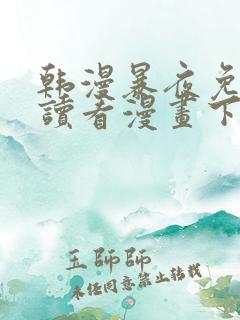 韩漫暴夜免
讀看漫畫下
王師師
未经同意禁止转载